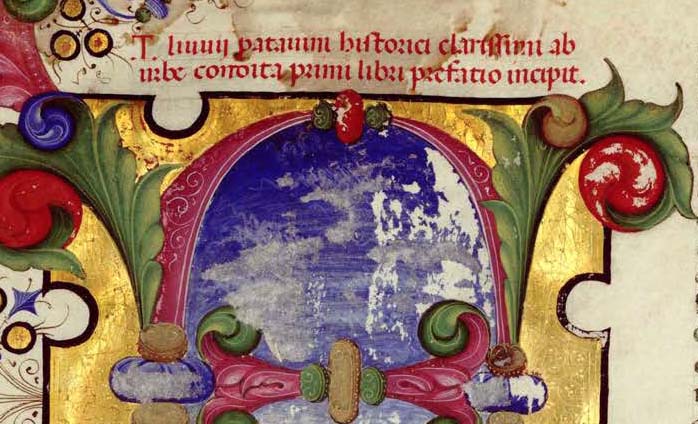 T. liuuij patauini historici clarissimi ab
urbe condita primi libri prefatio incipit.